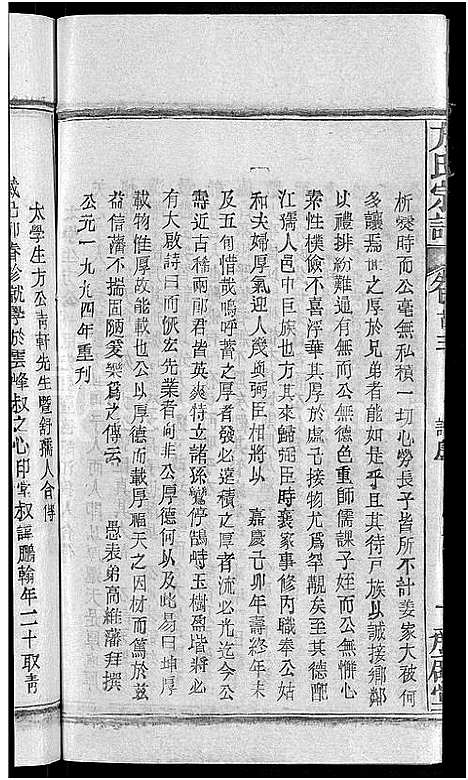 方氏宗譜
卷首三
析爨時而公毫無私積一切心勞長子皆所不計姜家大被何
多讓焉世之厚於兄弟者能如是乎且其待戶族以誠接鄉鄰
以禮排紛難而公無德色重師儒課子姪而公無懈心
素性樸儉不喜浮華其厚於庶乎接物尤爲罕覯矣至其德配
江孺人邑中巨族江公其大女其來歸
和夫婦厚氣迎人幾與弼臣相將以 嘉慶己卯年壽終年未
及五旬惜哉嗚呼蓄之厚者發必遠積之厚者流必光迄今公
需近古稀兩郎君皆英爽特立諸孫鸞停鵠峙玉樹盈堦將必
有大啟詩曰而恢宏先業者向非公厚德何以及此易曰坤厚
載物惟厚故能載也公以厚德而載厚福天之因材而篤於茲
益信藩不揣固陋爰樂爲之傳云 愚表弟高維藩拜撰
公元一九九四年重刊
太學生方公靑軒先生暨舒孺人合傳
歲乙卯春診就學於雲峰叔之心印堂叔諱鵬翰年二十取靑